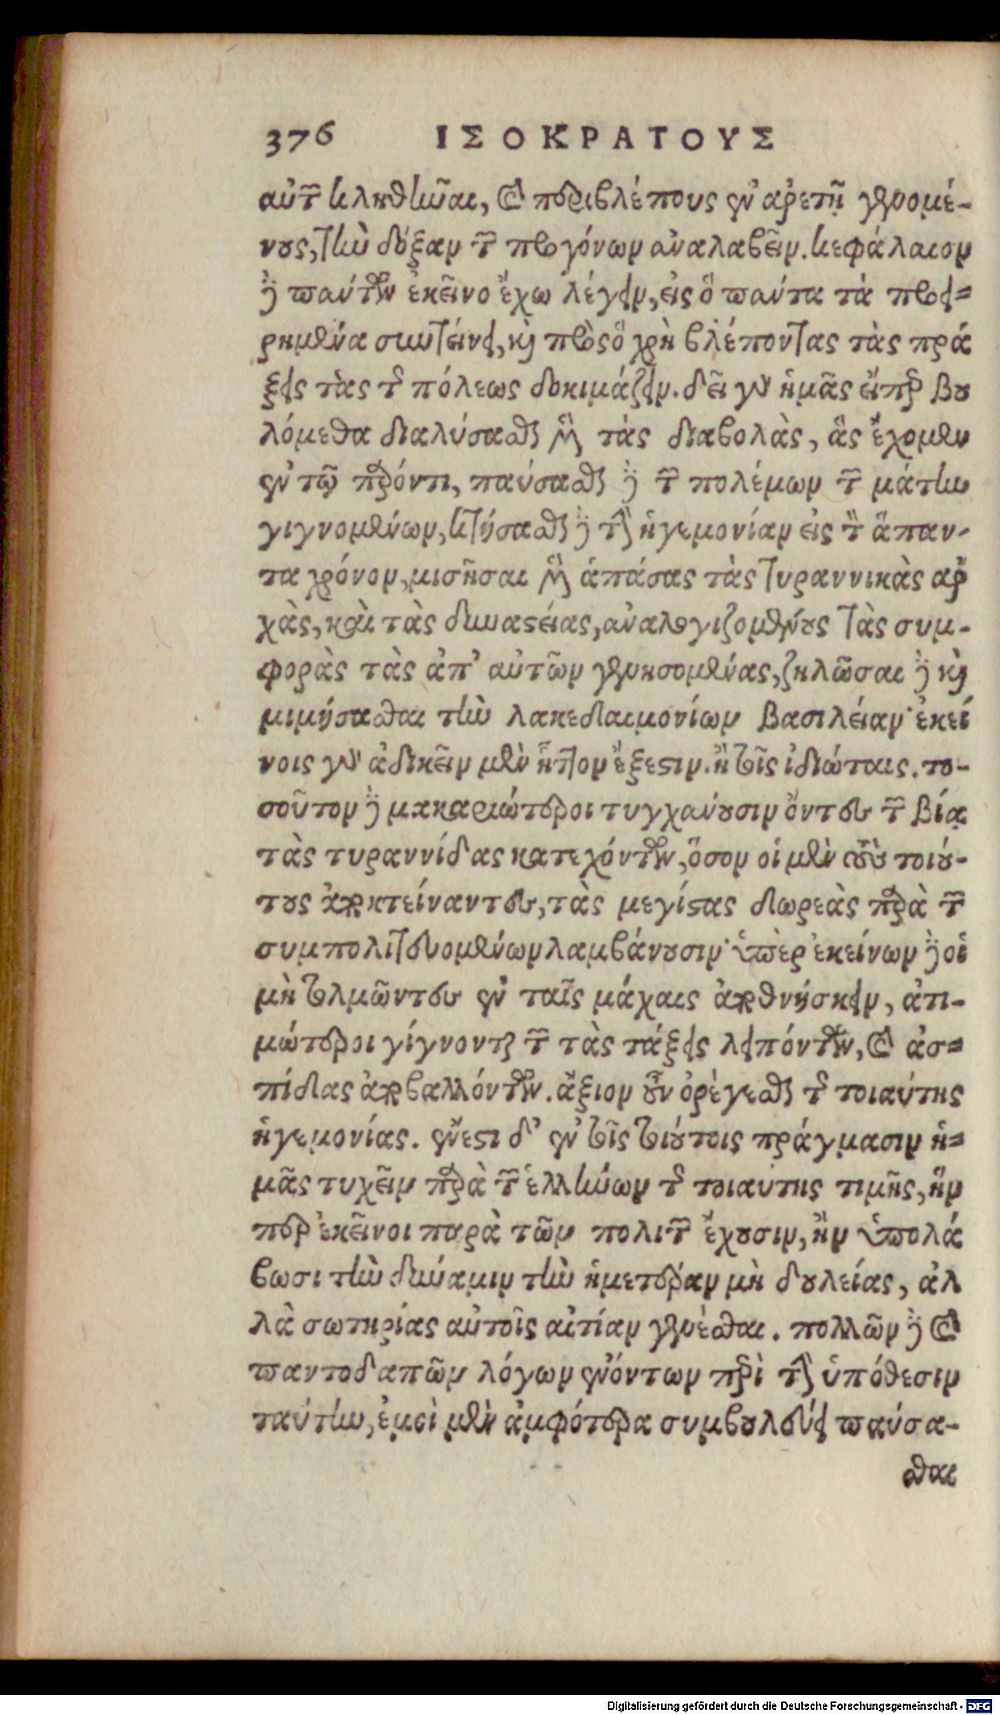 376 ΙΣΟΚΡΑΤΟΥΣ
αὐτῶν κληθῆναι, καὶ περιβλέπτους ἐν ἀρετῇ γενομέ-
νους, τὴν δόξαν τῶν προγόνων ἀναλαβεῖν. κεφάλαιον
δὲ πάντων ἐκεῖνο ἔχω λέγειν, εἰς ὃ πάντα τὰ προει-
ρημένα συντείνει, καὶ πρὸς ὃ χρὴ βλέποντας τὰς πρά
ξεις τὰς τῆς πόλεως δοκιμάζειν. δεῖ γὰρ ἡμᾶς εἴπερ βου
λόμεθα διαλύσασθαι μὲν τὰς διαβολὰς, ἃς ἔχομεν
ἐν τῷ παρόντι, παύσασθαι δὲ τῶν πολέμων τῶν μάτην
γιγνομένων, κτήσασθαι δὲ τὴν ἡγεμονίαν εἰς τὸν ἅπαν-
τα χρόνον, μισῆσαι μὲν ἁπάσας τὰς τυραννικὰς ἀρ
χὰς, καὶ τὰς δυναστείας, ἀναλογιζομένους τὰς συμ-
φορὰς τὰς ἀπ' αὐτῶν γενησομένας, ζηλῶσαι δὲ καὶ
μιμήσασθαι τὴν λακεδαιμονίων βασιλείαν· ἐκεί
νοις γὰρ ἀδικεῖν μὲν ἧττον ἔξεστιν. ἢ τοῖς ἰδιώταις. το-
σοῦτον δὲ μακαριώτεροι τυγχάνουσιν ὄντες τῶν βίᾳ
τὰς τυραννίδας κατεχόντων, ὅσον οἱ μὲν τοὺς τοιού-
τους ἀποκτείναντες, τὰς μεγίστας δωρεὰς παρὰ τῶν
συμπολιτευομένων λαμβάνουσιν· ὑπὲρ ἐκείνων δὲ οἱ
μὴ τολμῶντες ἐν ταῖς μάχαις ἀποθνήσκειν, ἀτι-
μώτεροι γίγνονται τῶν τὰς τάξεις λειπόντων, καὶ ἀσ-
πίδας ἀποβαλλόντων. ἄξιον οὖν ὀρέγεσθαι τῆς τοιαύτης
ἡγεμονίας. ἔνεστι δ' ἐν τοῖς τοιούτοις πράγμασιν ἡ-
μᾶς τυχεῖν παρὰ τῶν ἑλλήνων τῆς τοιαύτης τιμῆς, ἥν
περ ἐκεῖνοι παρὰ τῶν πολιτῶν ἔχουσιν, ἢν ὑπολά
βωσι τὴν δύναμιν τὴν ἡμετέραν μὴ δουλείας, ἀλ
λὰ σωτηρίας αὐτοῖς αἰτίαν γενέσθαι. πολλῶν δὲ καὶ
παντοδαπῶν λόγων ἐνόντων περὶ τὴν ὑπόθεσιν
ταύτην, ἐμοὶ μὲν ἀμφότερα συμβουλεύει παύσα-
σθαι
Digitalisierung gefördert durch die Deutsche Forschungsgemeinschaft - DFG